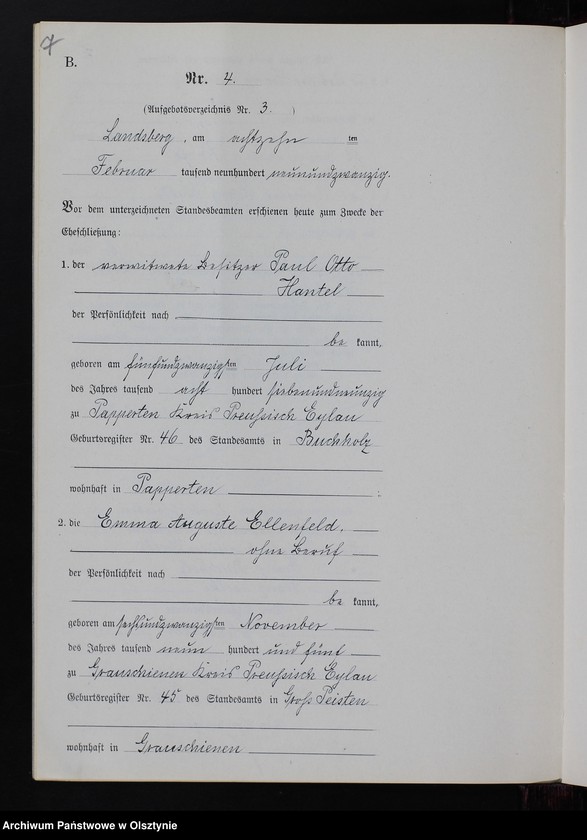 7
B.
Nr. 4.
(Aufgebotsverzeichnis Nr. 3. )
Landsberg, am achtzehn ten
Februar tausend neunhundert neunundzwanzig.
Vor dem unterzeichneten Standesbeamten erschienen heute zum Zwecke der
Eheschließung:
1. der verwitwete Besitzer Paul Otto
Hantel
der Persönlichkeit nach
be kannt,
geboren am fünfundzwanzigsten Juli
des Jahres tausend acht hundert siebenundneunzig
zu Papperten Kreis Preußisch Eylau
Geburtsregister Nr. 46 des Standesamts in Buchholz
wohnhaft in Papperten ;
2. die Emma Auguste Ellenfeld,
ohne Beruf
der Persönlichkeit nach
be kannt,
geboren am sechsundzwanzigsten November
des Jahres tausend neun hundert und fünf
zu Grauschienen Kreis Preußisch Eylau
Geburtsregister Nr. 45 des Standesamts in Groß Peisten
wohnhaft in Grauschienen
Archiwum Państwowe w Olsztynie